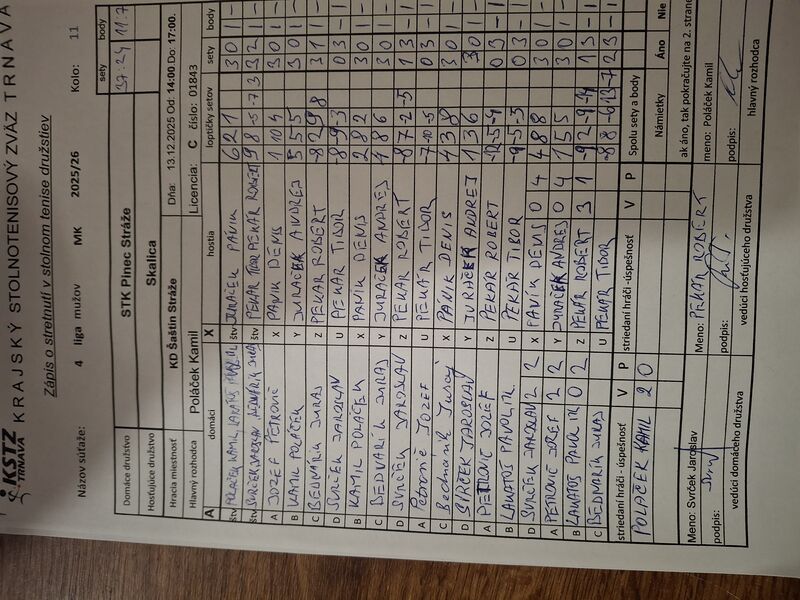 KSTZ TRNAVA KRAJSKÝ STOLNOTENISOVÝ ZVÄZ TRNAVA
Zápis o stretnutí v stolnom tenise družstiev
Názov súťaže: 4 liga mužov MK 2025/26 Kolo: 11
sety body
Domáce družstvo STK Plnec Stráže 37:24 11:7
Hosťujúce družstvo Skalica
Hracia miestnosť KD Šaštín Stráže Dňa: 13.12.2025 Od: 14:00 Do: 17:00.
Hlavný rozhodca Poláček Kamil Licencia: C číslo: 01843
A domáci X hostia loptičky setov sety body
štv JURAČEK PÁNIK 6 2 1 3 0 1 -
štv 9 8 -5 -7 3 3 2 1 -
A JOZEF PETROVIČ X PÁNIK DENIS 3 0 1 -
B KAMIL POLÁČEK Y JURAČEK ANDREJ 5 5 5 3 0 1 -
C BEDNARIK JURAJ Z PEKAR ROBERT 3 1 1 -
D SVRČEK JAROSLAV U PEKAR TIBOR -8 -9 -3 0 3 - 1
B KAMIL POLÁČEK X PANIK DENIS 2 8 2 3 0 1 -
C BEDNARIK JURAJ Y JURAČEK ANDREJ 4 8 6 3 0 1 -
D SVRČEK JAROSLAV Z PEKAR ROBERT -8 7 -2 -5 1 3 - 1
A Petrovič JOZEF U PEKAR TIBOR -7 -10 -5 0 3 - 1
C Bednarik Juraj X PÁNIK DENIS 4 3 8 3 0 1 -
D SVRČEK JAROSLAV Y JURAČEK ANDREJ 1 3 6 3 0 1 -
A PETROVIČ JOZEF Z PEKAR ROBERT -12 -5 -4 0 3 - 1
B U PEKAR TIBOR -9 -5 -5 0 3 - 1
D SVRČEK JAROSLAV 2 2 X PANIK DENIS 0 4 4 8 8 3 0 1 -
A PETROVIČ JOZEF 2 2 Y JURAČEK ANDREJ 0 4 1 5 5 3 0 1 -
B 0 2 Z PEKAR ROBERT 3 1 1 3 - 1
C BEDNARIK JURAJ U PEKAR TIBOR 2 3 - 1
striedaní hráči -úspešnosť V P striedaní hráči -úspešnosť V P Spolu sety a body
POLÁČEK KAMIL 2 0 Námietky Áno Nie
ak áno, tak pokračujte na 2. strane
Meno: Svrček Jaroslav Meno: PEKAR ROBERT meno: Poláček Kamil
podpis: podpis: podpis:
vedúci domáceho družstva vedúci hosťujúceho družstva hlavný rozhodca